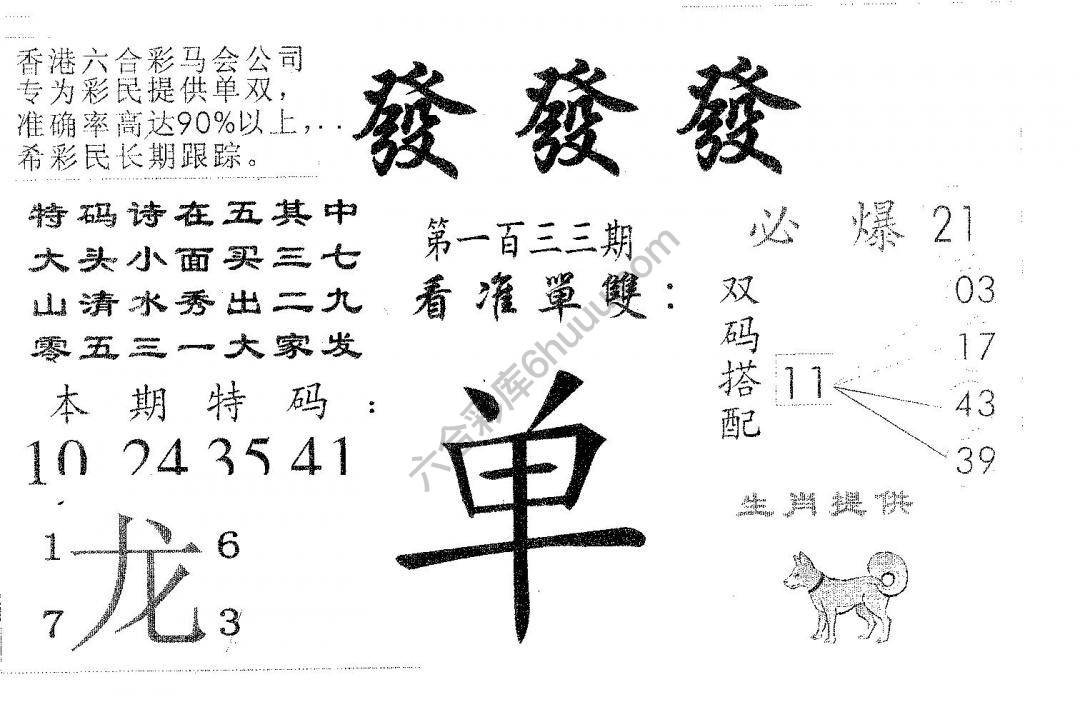 香港六合彩马会公司
专为彩民提供单双，
准确率高达90%以上，..
希彩民长期跟踪。
發 發 發
特码诗在五其中
大头小面买三七
山清水秀出二九
零五三一大家发
本期特码：
10 24 35 41
1 龙 6
7 3
第一百三三期
看准單雙：
单
必爆21
双码搭配
11
03
17
43
39
生肖提供
六合彩库6huuu.com